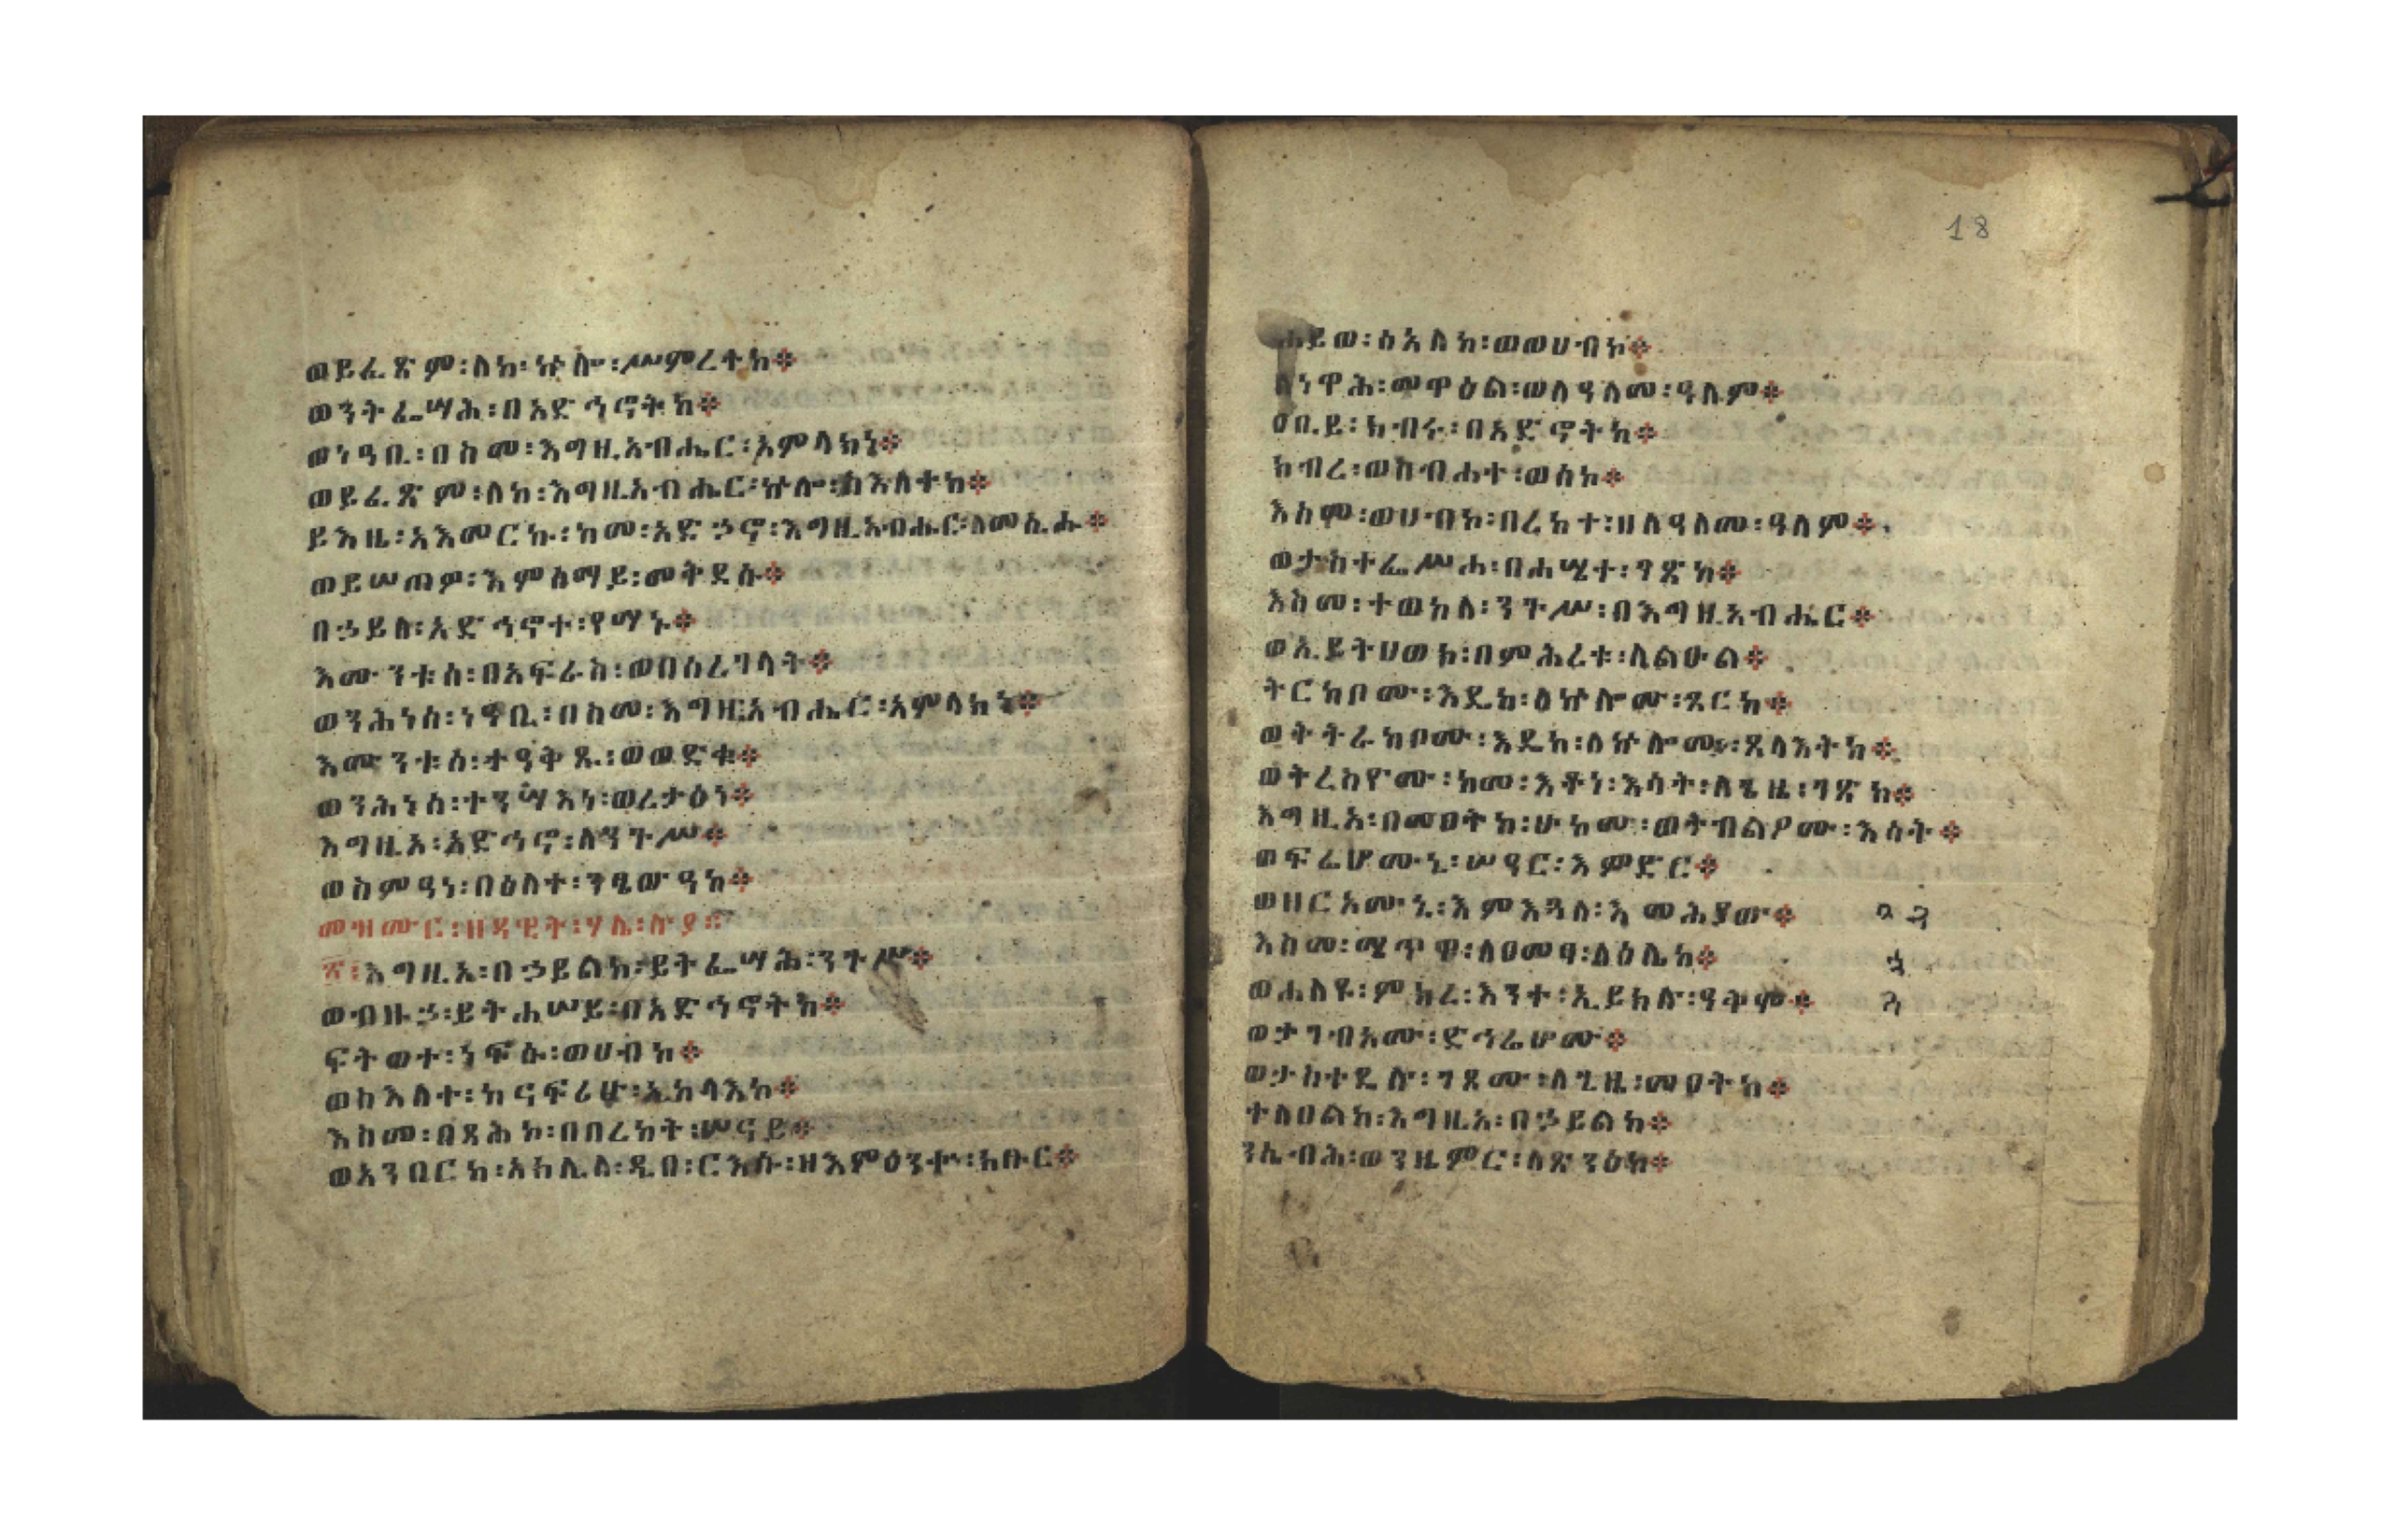 ወይፌጽም፡ለከ፡ኵሎ፡ሥምረተከ።
ወንትፌሣሕ፡በአድኅኖትከ።
ወነዓቢ፡በስመ፡እግዚአብሔር፡አምላክነ።
ወይፌጽም፡ለከ፡እግዚአብሔር፡ኵሎ፡ስእለተከ።
ይእዜ፡አእመርኩ፡ከመ፡አድኃኖ፡እግዚአብሔር፡ለመሲሑ።
ወይሠጠዎ፡እምሰማይ፡መቅደሱ።
በኃይለ፡አድኅኖተ፡የማኑ።
እሙንቱሰ፡በአፍራስ፡ወበሰረገላት።
ወንሕነሰ፡ነዓቢ፡በስመ፡እግዚአብሔር፡አምላክነ።
እሙንቱሰ፡ተዓቅጹ፡ወወድቁ።
ወንሕነሰ፡ተንሣእነ፡ወረታዕነ።
እግዚአ፡አድኅኖ፡ለንጉሥ።
ወስምዓነ፡በዕለተ፡ንጼውዓከ።
መዝሙር፡ዘዳዊት፡ሃሌ፡ሉያ።
፳፡እግዚኦ፡በኃይልከ፡ይትፌሣሕ፡ንጉሥ።
ወብዙኃ፡ይትሐሠይ፡በአድኅኖትከ።
ፍትወተ፡ነፍሱ፡ወሀብከ።
ወስእለተ፡ከናፍሪሁ፡ኢከላእከ።
እስመ፡በጻሕኮ፡በበረከት፡ሠናይ።
ወአንበርከ፡አክሊለ፡ዲበ፡ርእሱ፡ዘእምዕንቍ፡ክቡር።
18
ሐይወ፡ሰአለከ፡ወወሀብኮ።
ለነዋሕ፡መዋዕል፡ወለዓለመ፡ዓለም።
ዐቢይ፡ክብሩ፡በአድኖትከ።
ክብረ፡ወስብሐተ፡ወሰከ።
እስመ፡ወሀብኮ፡በረከተ፡ዘለዓለመ፡ዓለም።
ወታስተፌሥሖ፡በሐሤተ፡ገጽከ።
እስመ፡ተወከለ፡ንጉሥ፡በእግዚአብሔር።
ወኢይትሀወክ፡በምሕረቱ፡ለልዑል።
ትርከቦሙ፡እዴከ፡ለኵሎሙ፡ጸርከ።
ወትትራከቦሙ፡እዴከ፡ለኵሎሙ፡ጸላእትከ።
ወትረስዮሙ፡ከመ፡እቶነ፡እሳት፡ለጊዜ፡ገጽከ።
እግዚአ፡በመዐትከ፡ሁኮሙ፡ወትብልዖሙ፡እሳት።
ወፍሬሆሙኒ፡ሠዓር፡እምድር።
ወዘርኦሙኒ፡እምእጓለ፡እመሕያው።
እስመ፡ሜጥዋ፡ለዐመፃ፡ላዕሌከ።
ወሐለዩ፡ምክረ፡እንተ፡ኢይክሉ፡ዓቅም።
ወታገብኦሙ፡ድኅሬሆሙ።
ወታስተዴሉ፡ገጾሙ፡ለጊዜ፡መዐትከ።
ተለዐልከ፡እግዚኦ፡በኃይልከ።
ንሴብሕ፡ወንዜምር፡ለጽንዕከ።